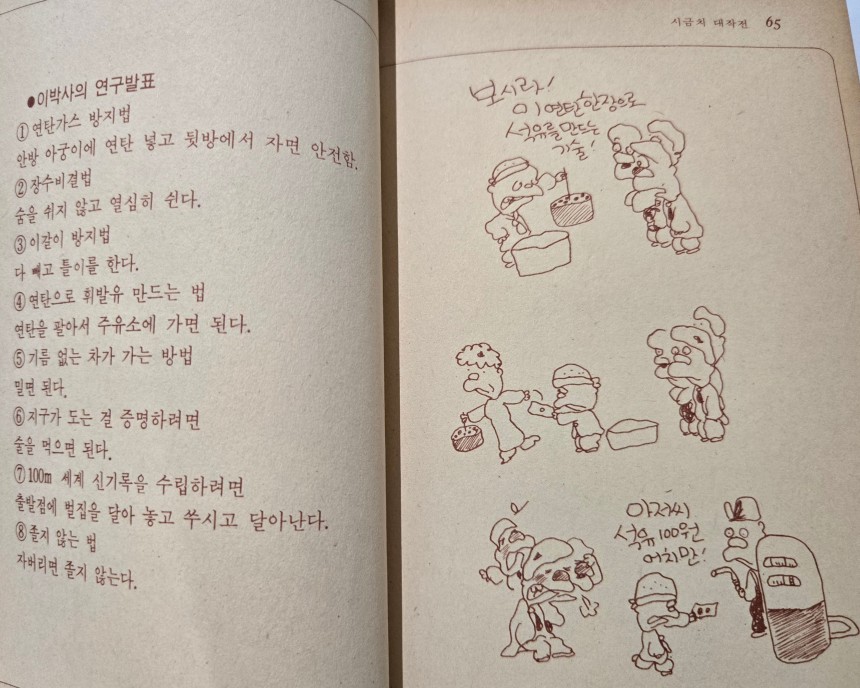 ●이박사의 연구발표
①연탄가스 방지법
안방 아궁이에 연탄 넣고 뒷방에서 자면 안전함.
②장수비결법
숨을 쉬지 않고 열심히 쉰다.
③이갈이 방지법
다 빼고 틀이를 한다.
④연탄으로 휘발유 만드는 법
연탄을 팔아서 주유소에 가면 된다.
⑤기름 없는 차가 가는 방법
밀면 된다.
⑥지구가 도는 걸 증명하려면
술을 먹으면 된다.
⑦100m 세계 신기록을 수립하려면
출발점에 벌집을 달아 놓고 쑤시고 달아난다.
⑧졸지 않는 법
자버리면 졸지 않는다.
시금치 대작전 65
보시라!
이 연탄한장으로
석유를 만드는
기술!
아저씨
석유 100원
어치만!